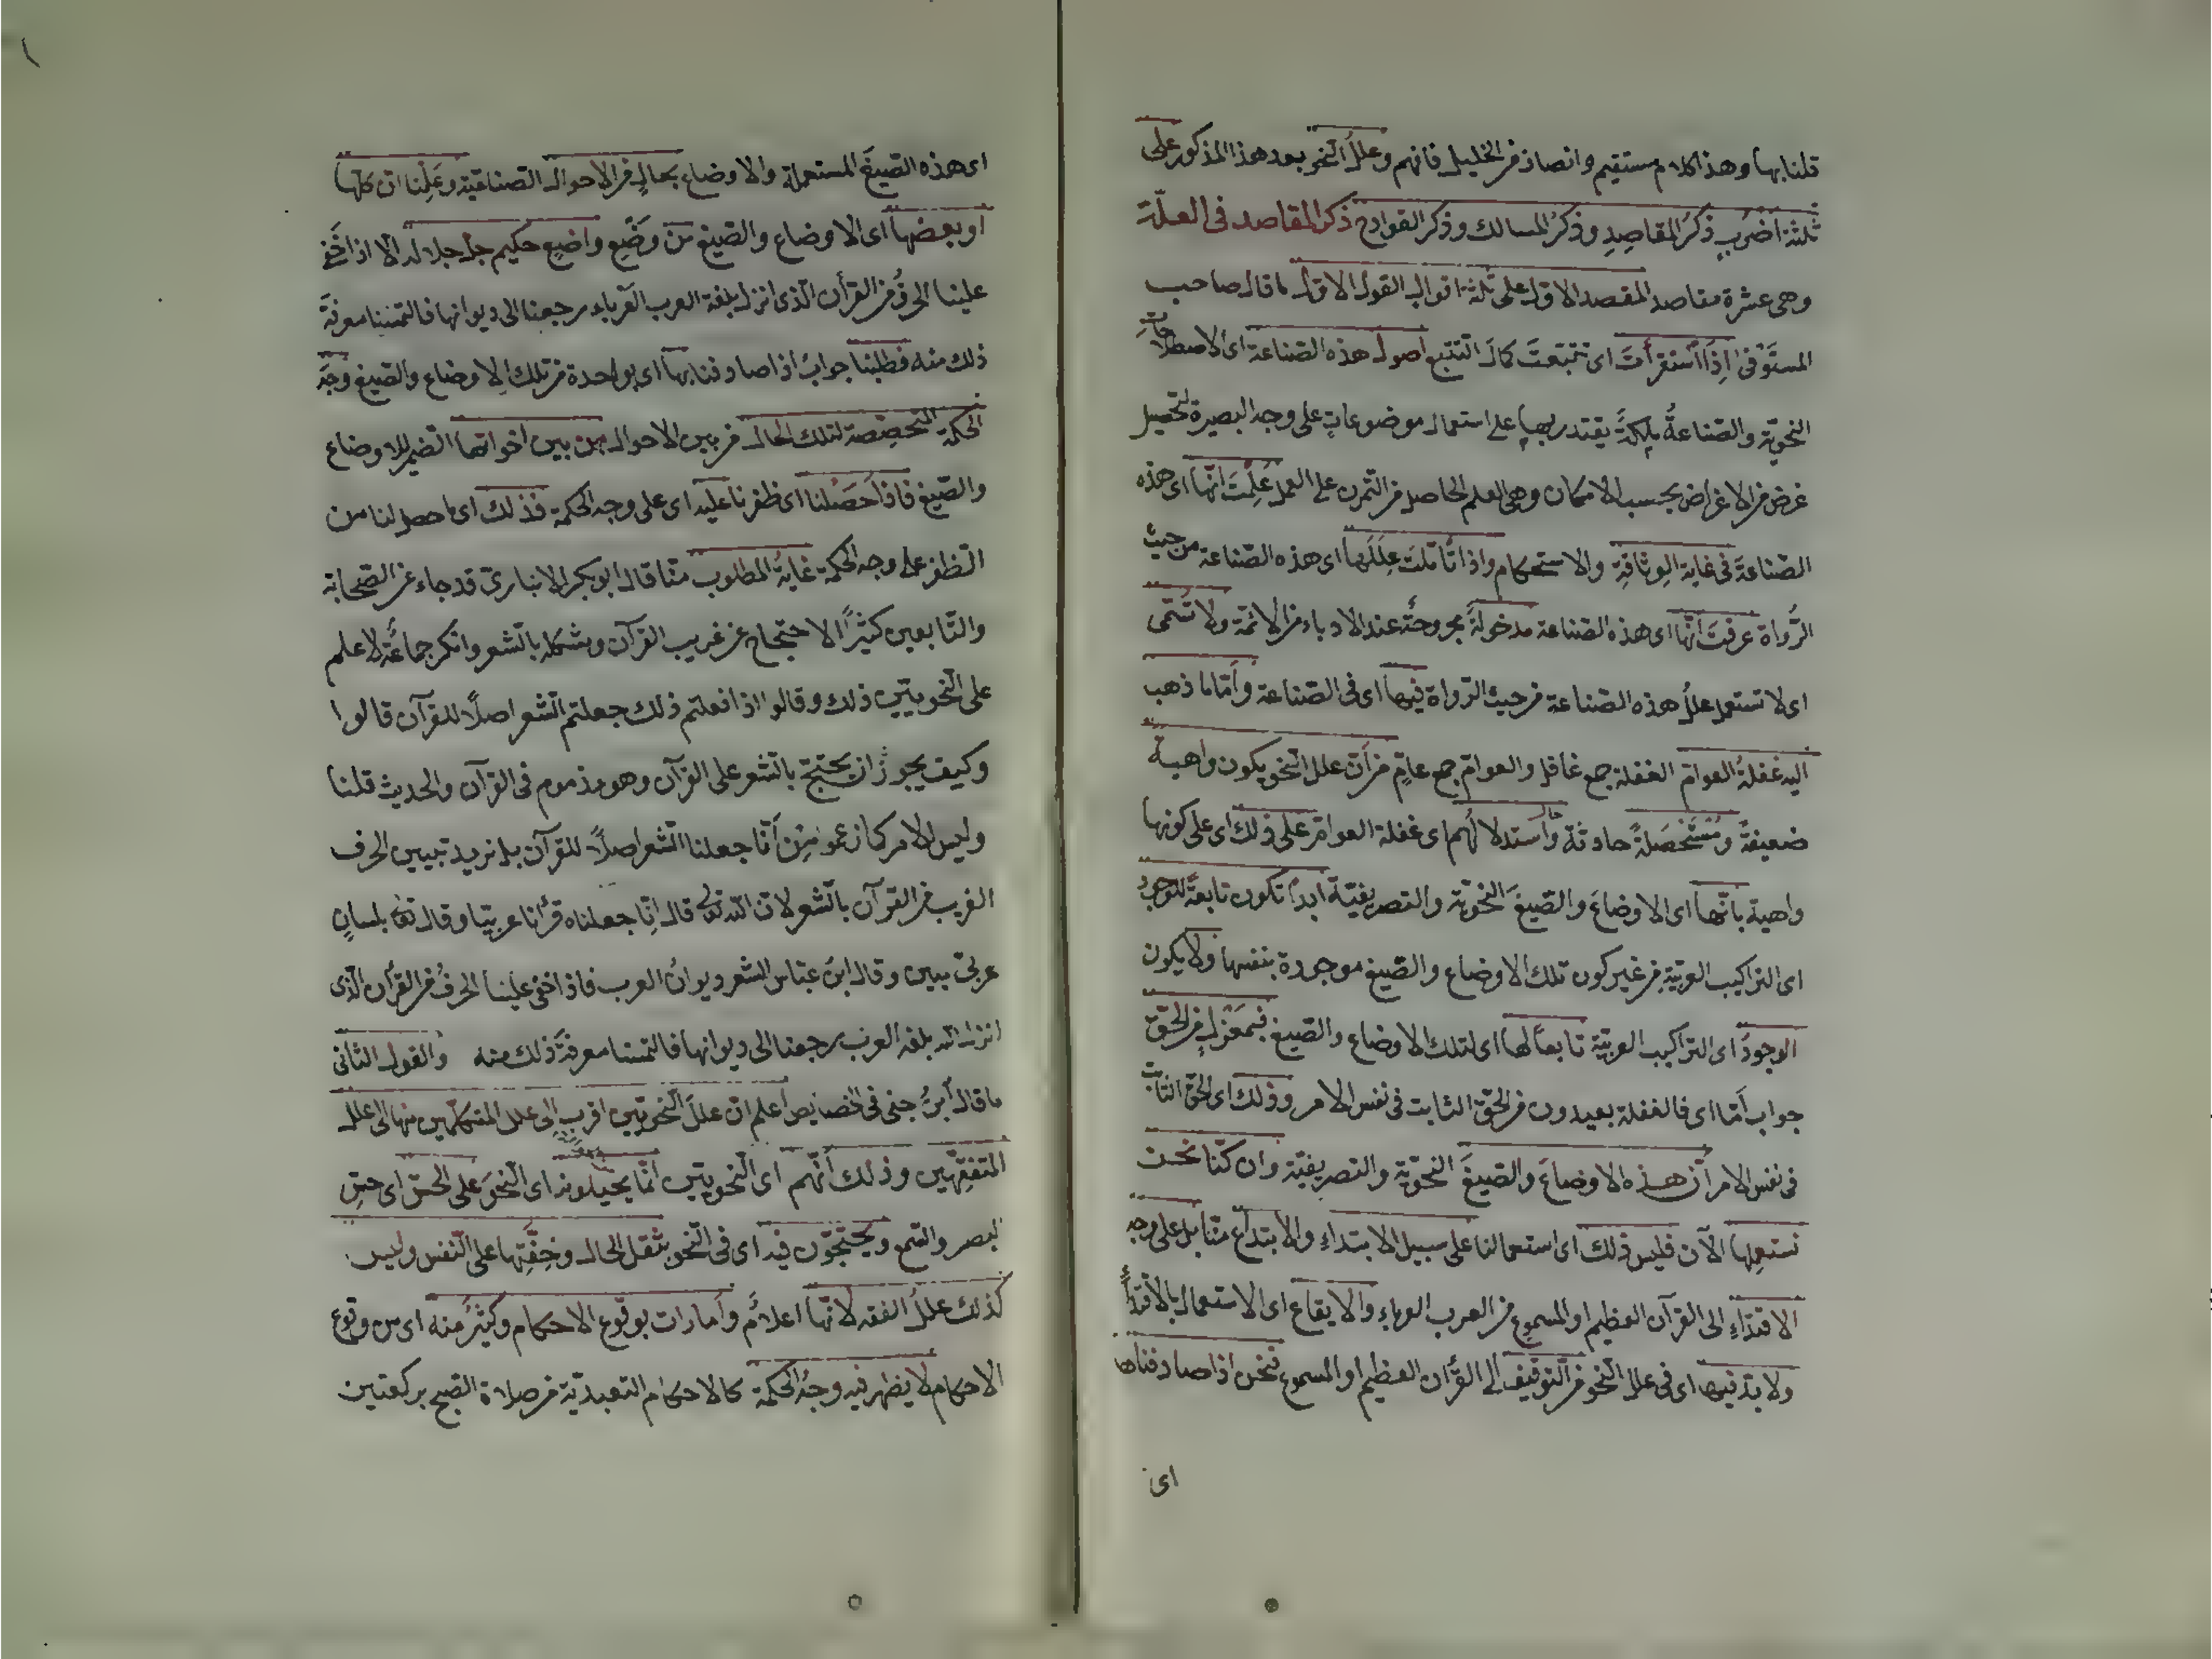 قلنا بها وهذا كلام مستقيم وانصاف من الخليل فافهم وعلل النحو بعد هذا المذكور على
ثلثة اضرب ذكر المقاصد وذكر المسالك وذكر القوادح ذكر المقاصد فى العلّة
وهى عشرة مقاصد المقصد الاوّل على ثلثة اقوال القول الاوّل ما قال صاحب
المستوفى اذا استقرأت اى تتبعت كمال التتبع اصول هذه الصناعة اى الاصطلاحات
النحويّة والصّناعةُ ملكةٌ يقتدر بها على استعمال موضوعاتٍ على وجه البصيرة لتحصيل
غرض من الاغراض بحسب الامكان وهى العلم الحاصل من التمرن على العمل علمتَ انّها اى هذه
الصّناعةَ فى غاية الوثاقةِ والاستحكام واذا تأمّلتَ عِللَها اى هذه الصّناعة من حيث
الرُّواة عرفتَ انّها اى هذه الصناعة مدخولةً مجروحةٌ عند الادباء من الائمّة ولا تُسمّى
اى لا تستعمل عللُ هذه الصّناعة من حيث الرّواة فيها اى فى الصّناعة وأمّا ما ذهب
اليه غفلةُ العوامّ الغفلة جمع غافل والعوامّ جمع عامّ من أنّ علل النحو يكون واهيةً
ضعيفةً ومُتَمَحَّلةً حادثة واستدلالهم اى غفلة العوامّ على ذلك اى على كونها
واهية بأنّها اى الاوضاعَ والصّيغَ النحويّة والتصريفيّة ابداً تكون تابعةً للوجود
اى التراكيب العربيّة من غير كون تلك الاوضاع والصّيغ موجودة بنفسها ولا يكون
الوجودُ اى التراكيب العربيّة تابعاً لها اى لتلك الاوضاع والصّيغ فبمعزل من الحقّ
جواب أمّا اى فالغفلة بعيدون من الحقّ الثابت فى نفس الامر وذلك اى الحقّ الثابت
فى نفس الامر أنّ هذه الاوضاعَ والصّيغَ النحويّة والتصريفيّة وان كنّا نحن
نستعملها الآن فليس ذلك اى استعمالنا على سبيل الابتداءِ والابتداع منّا بل على وجه
الاقتداءِ الى القرآن العظيم او المسموع من العرب العرباء والايقاع اى الاستعمال بالاقتداء
ولا بدّ فيها اى فى علل النحو من التّوقيف الى القرأن العظيم او المسموع فنحن اذا صادفناها
اى
اى هذه الصّيغَ المستعملة والاوضاع بحالٍ من الاحوال الصّناعيّة وعَلِمنا انّ كلّها
او بعضها اى الاوضاع والصّيغ من وَضْعِ واضعٍ حكيم جلّ جلاله الّا اذا خفى
علينا الحرفُ من القرأن الّذى انزل بلغة العرب العرباء رجعنا الى ديوانها فالتمسنا معرفةَ
ذلك منه فطلبنا جوابُ اذا صادفنا بها اى بواحدة من تلك الاوضاع والصّيغ وجهَ
الحكمة المخصّصة لتلك الحال من بين الاحوال من بين اخواتها الضّمير للاوضاع
والصّيغ فاذا حصّلنا اى ظفرنا عليه اى على وجه الحكمة فذلك اى ما حصل لنا من
الظفر على وجه الحكمة غايةُ المطلوب منّا قال ابو بكر الانبارىّ قد جاء عن الصّحابة
والتّابعين كثيراً الاحتجاج عن غريب القرآن ومشكله بالشعر وانكر جماعةٌ لا علم
على النّحويّين ذلك وقالوا اذا فعلتم ذلك جعلتم الشعر اصلًا للقرآن قالوا
وكيف يجوز ان يحتجّ بالشعر على القرآن وهو مذموم فى القرآن والحديث قلنا
وليس الامر كما زعموا من أنّا جعلنا الشعر اصلًا للقرآن بل نريد تبيين الحرف
الغريب من القرآن بالشعر لانّ الله تعالى قال انّا جعلناه قرأنا عربيّا وقال تعالى بلسانٍ
عربىّ مبين وقال ابن عبّاس الشعر ديوانُ العرب فاذا خفى علينا الحرفُ من القرأن الّذى
انزله الله بلغة العرب رجعنا الى ديوانها فالتمسنا معرفةَ ذلك منه والقول الثانى
ما قال ابنُ جنى فى الخصايص اعلم انّ عللَ النّحويّين اقرب الى علل المتكلّمين منها الى علل
المتفقّهين وذلك أنّهم اى النّحويّين انّما يحيلونه اى النّحوَ على الحسّ اى حسّ
البصر والسّمع ويحتجّون فيه اى فى النّحو بثقل الحال وخفّتها على النّفس وليس
كذلك عللُ الفقه لانّها اعلامٌ وأمارات بوقوع الاحكام وكثيرٌ منه اى من وقوع
الاحكام لا يظهر فيه وجهُ الحكمة كالاحكام التعبديّة من صلاة الصّبح بركعتين